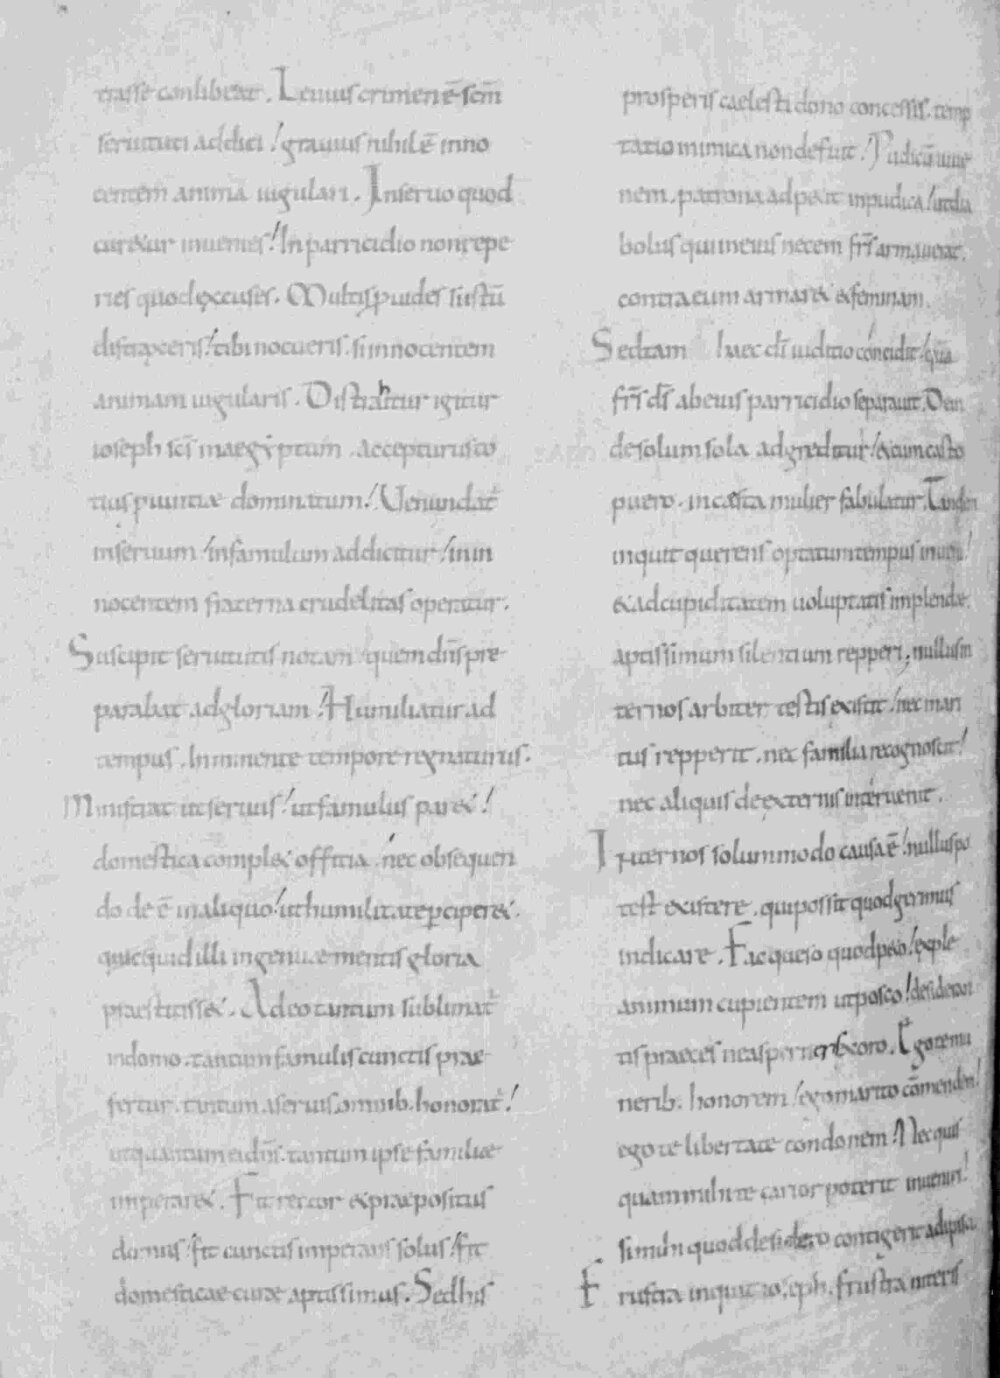 trasse conlibeat. Leuius crimen ē scm̄
seruituti addici! grauius nihil ē inno
centem animā iugulari. In seruo quod
curetur inuenies! In parricidio non repe
ries quod excuses. Multis puides si istū
distraxeris! tibi nocueris. si innocentem
animam iugularis. Distrahitur igitur
ioseph scī in aegyptum. accepturus to
tius puintiae dominatum! Uenundat̄
in seruum! in famulum addicitur! in in
nocentem fraterna crudelitas operatur.
Suscipit seruitutis notam quem dn̄s pre
parabat ad gloriam! Humiliatur ad
tempus. Inminente tempore regnaturus.
Ministrat ut seruus! ut famulus paret!
domestica complet offitia. nec obsequen
do de ē in aliquo! ut humilitate perciperet.
quicquid illi ingenuae mentis gloria
praestitisset. Adeo tantum sublimat̄
in domo. tantum famulis cunctis prae
fertur. tantum a seruis omnib. honorat̄!
ut quantum ei dn̄s. tantum ipse familiae
imperaret. Fit rector et praepositus
domus! fit cunctis imperans solus! fit
domesticae curae aptissimus. Sed his
prosperis caelesti dono concessis. temp
tatio inimica non defuit. Pudicū iuue
nem. patrona adpetit inpudica! ut dia
bolus qui in eius necem frs̄ armauerat.
contra eum armaret et feminam.
Sed tam haec dī iuditio concidit! quā
frs̄ ds̄ ab eius parricidio separauit. Dein
de solum sola adgreditur! et cum casto
puero. incasta mulier fabulatur. Tandem
inquit querens optatum tempus inueni!
et ad cupiditatem uoluptatis implendae.
aptissimum silentium repperi. nullus in
ter nos arbiter testis existit! nec mari
tus repperit. nec familia recognoscit!
nec aliquis de externis interuenit.
Inter nos solummodo causa ē! nullus po
test existere. qui possit quod gerimus
indicare. Fac queso quod peto! exple
animum cupientem ut posco! desideran
tis praeces ne asperneris exoro. Ego te mu
nerib. honorem! ego marito cōmendem!
ego te libertate condonem! Nec quis
quam mihi te carior poterit inueniri!
si mihi quod desidero contigerit adipisci.
Frustra inquit ioseph. frustra niteris